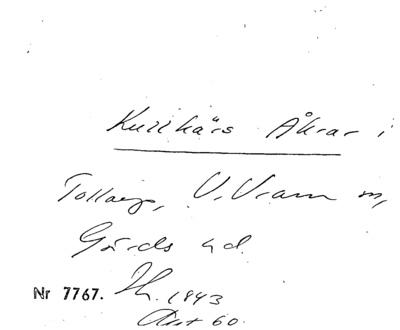 Kullkärs Åkrar i
Tollarp, V. Vram m,
Gärds hd.
Nr 7767. 1943
60.